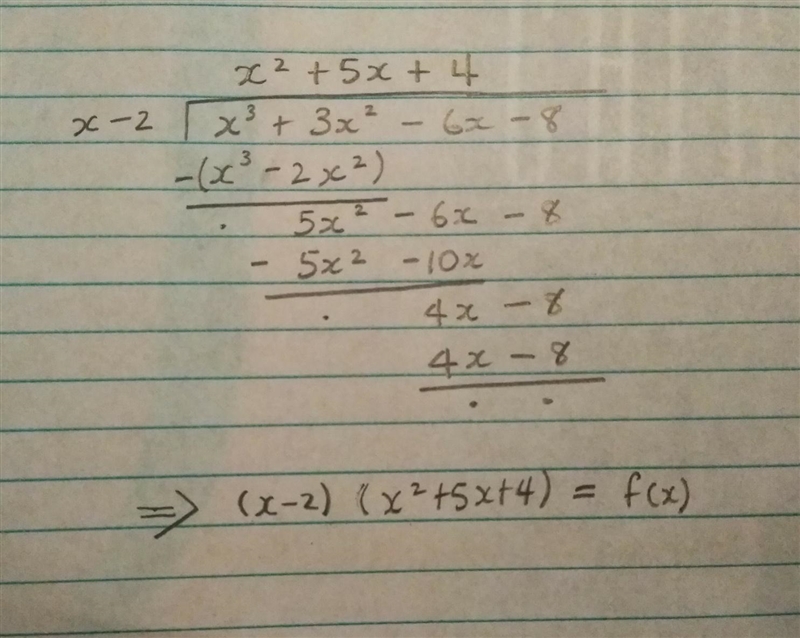 x² + 5x + 4
x - 2 x³ + 3x² - 6x - 8
-(x³ - 2x²)
. 5x² - 6x - 8
- 5x² - 10x
. 4x - 8
4x - 8
. .
⇒ (x-2) (x²+5x+4) = f(x)